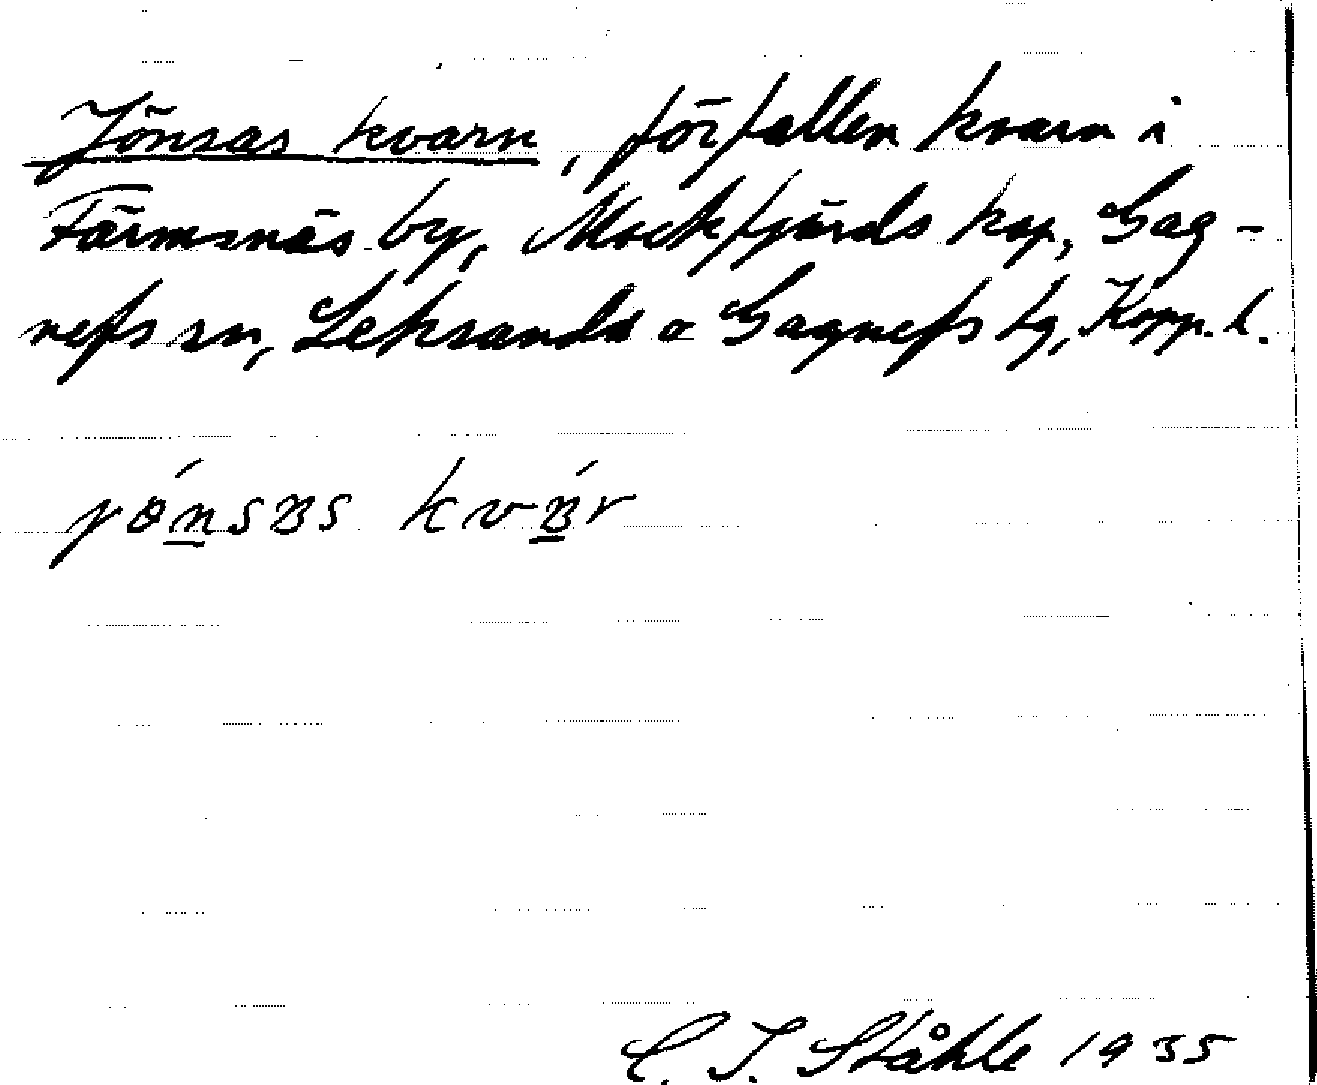 Jönsas kvarn, förfallen kvarn i
Färmsnäs by, Mockfjärds kap, Gag-
nefs sn, Leksands o Gagnefs tg, Kopp. l.
C. I. Ståhle 1935